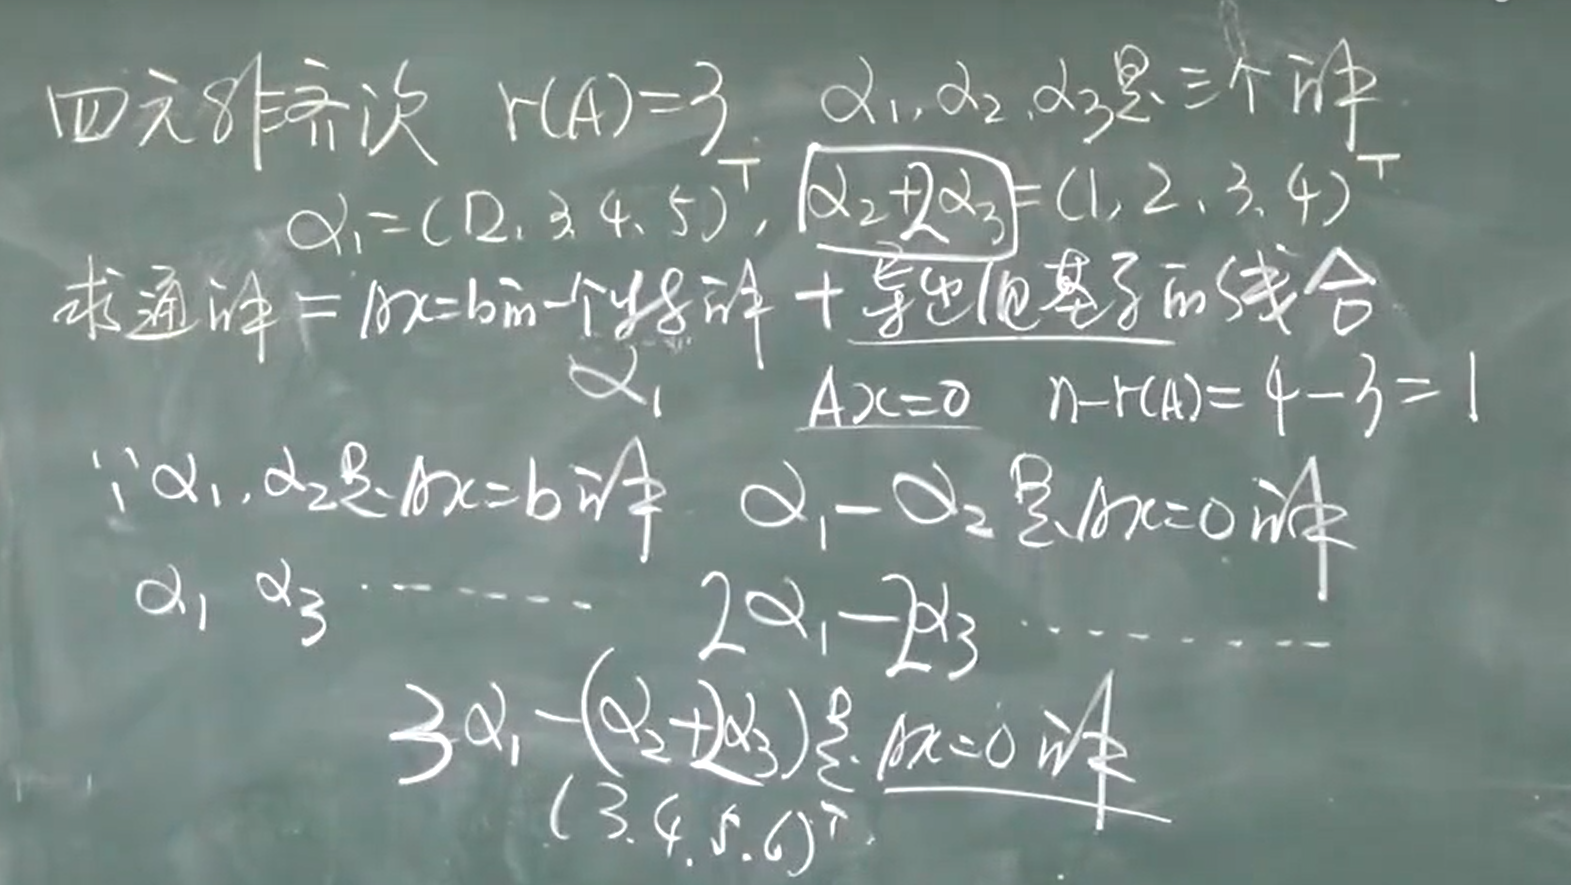 四元非齐次 r(A)=3 α₁,α₂,α₃是三个解
α₁=(2,3,4,5)ᵀ, α₂+2α₃=(1,2,3,4)ᵀ
求通解=Ax=b的一个特解+导出组基础的线合
α₁ Ax=0 n-r(A)=4-3=1
∵α₁,α₂是Ax=b解 α₁-α₂是Ax=0解
α₁ α₃ ------ 2α₁-2α₃ ------
3α₁-(α₂+2α₃)是Ax=0解
(3.4.5.6)ᵀ